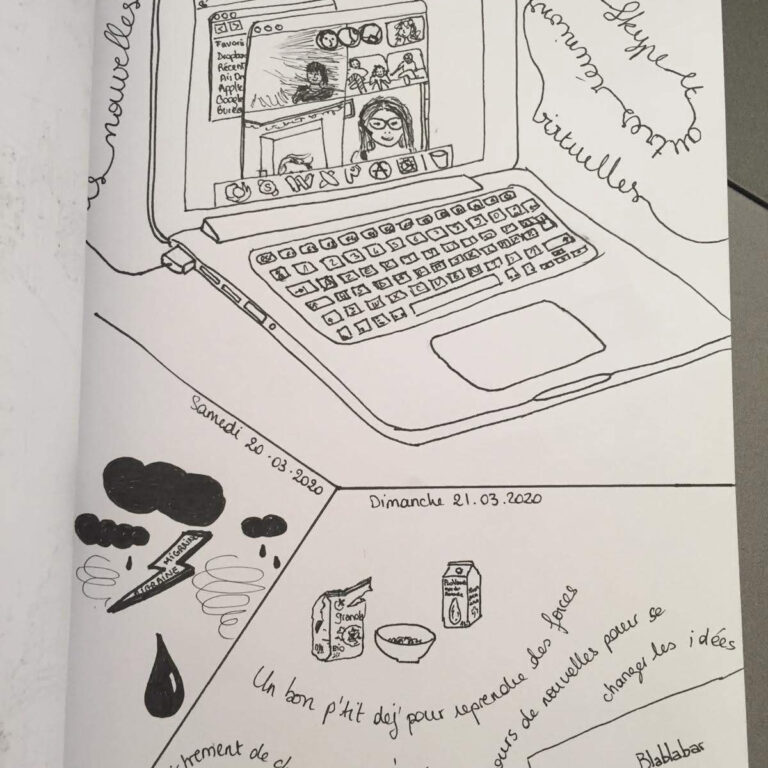 nouvelles
Skype et
autres réunions
virtuelles
Favoris
Dropbox
Récent
Air Dr
Apple
Google
Bureau
W X P A
Samedi 20.03.2020
MIGRAINE
MIGRAINE
Dimanche 21.03.2020
granola
BIO
Un bon p'tit dej' pour reprendre des forces
ours de nouvelles pour se
changer les idées
trement de c
Blablabar